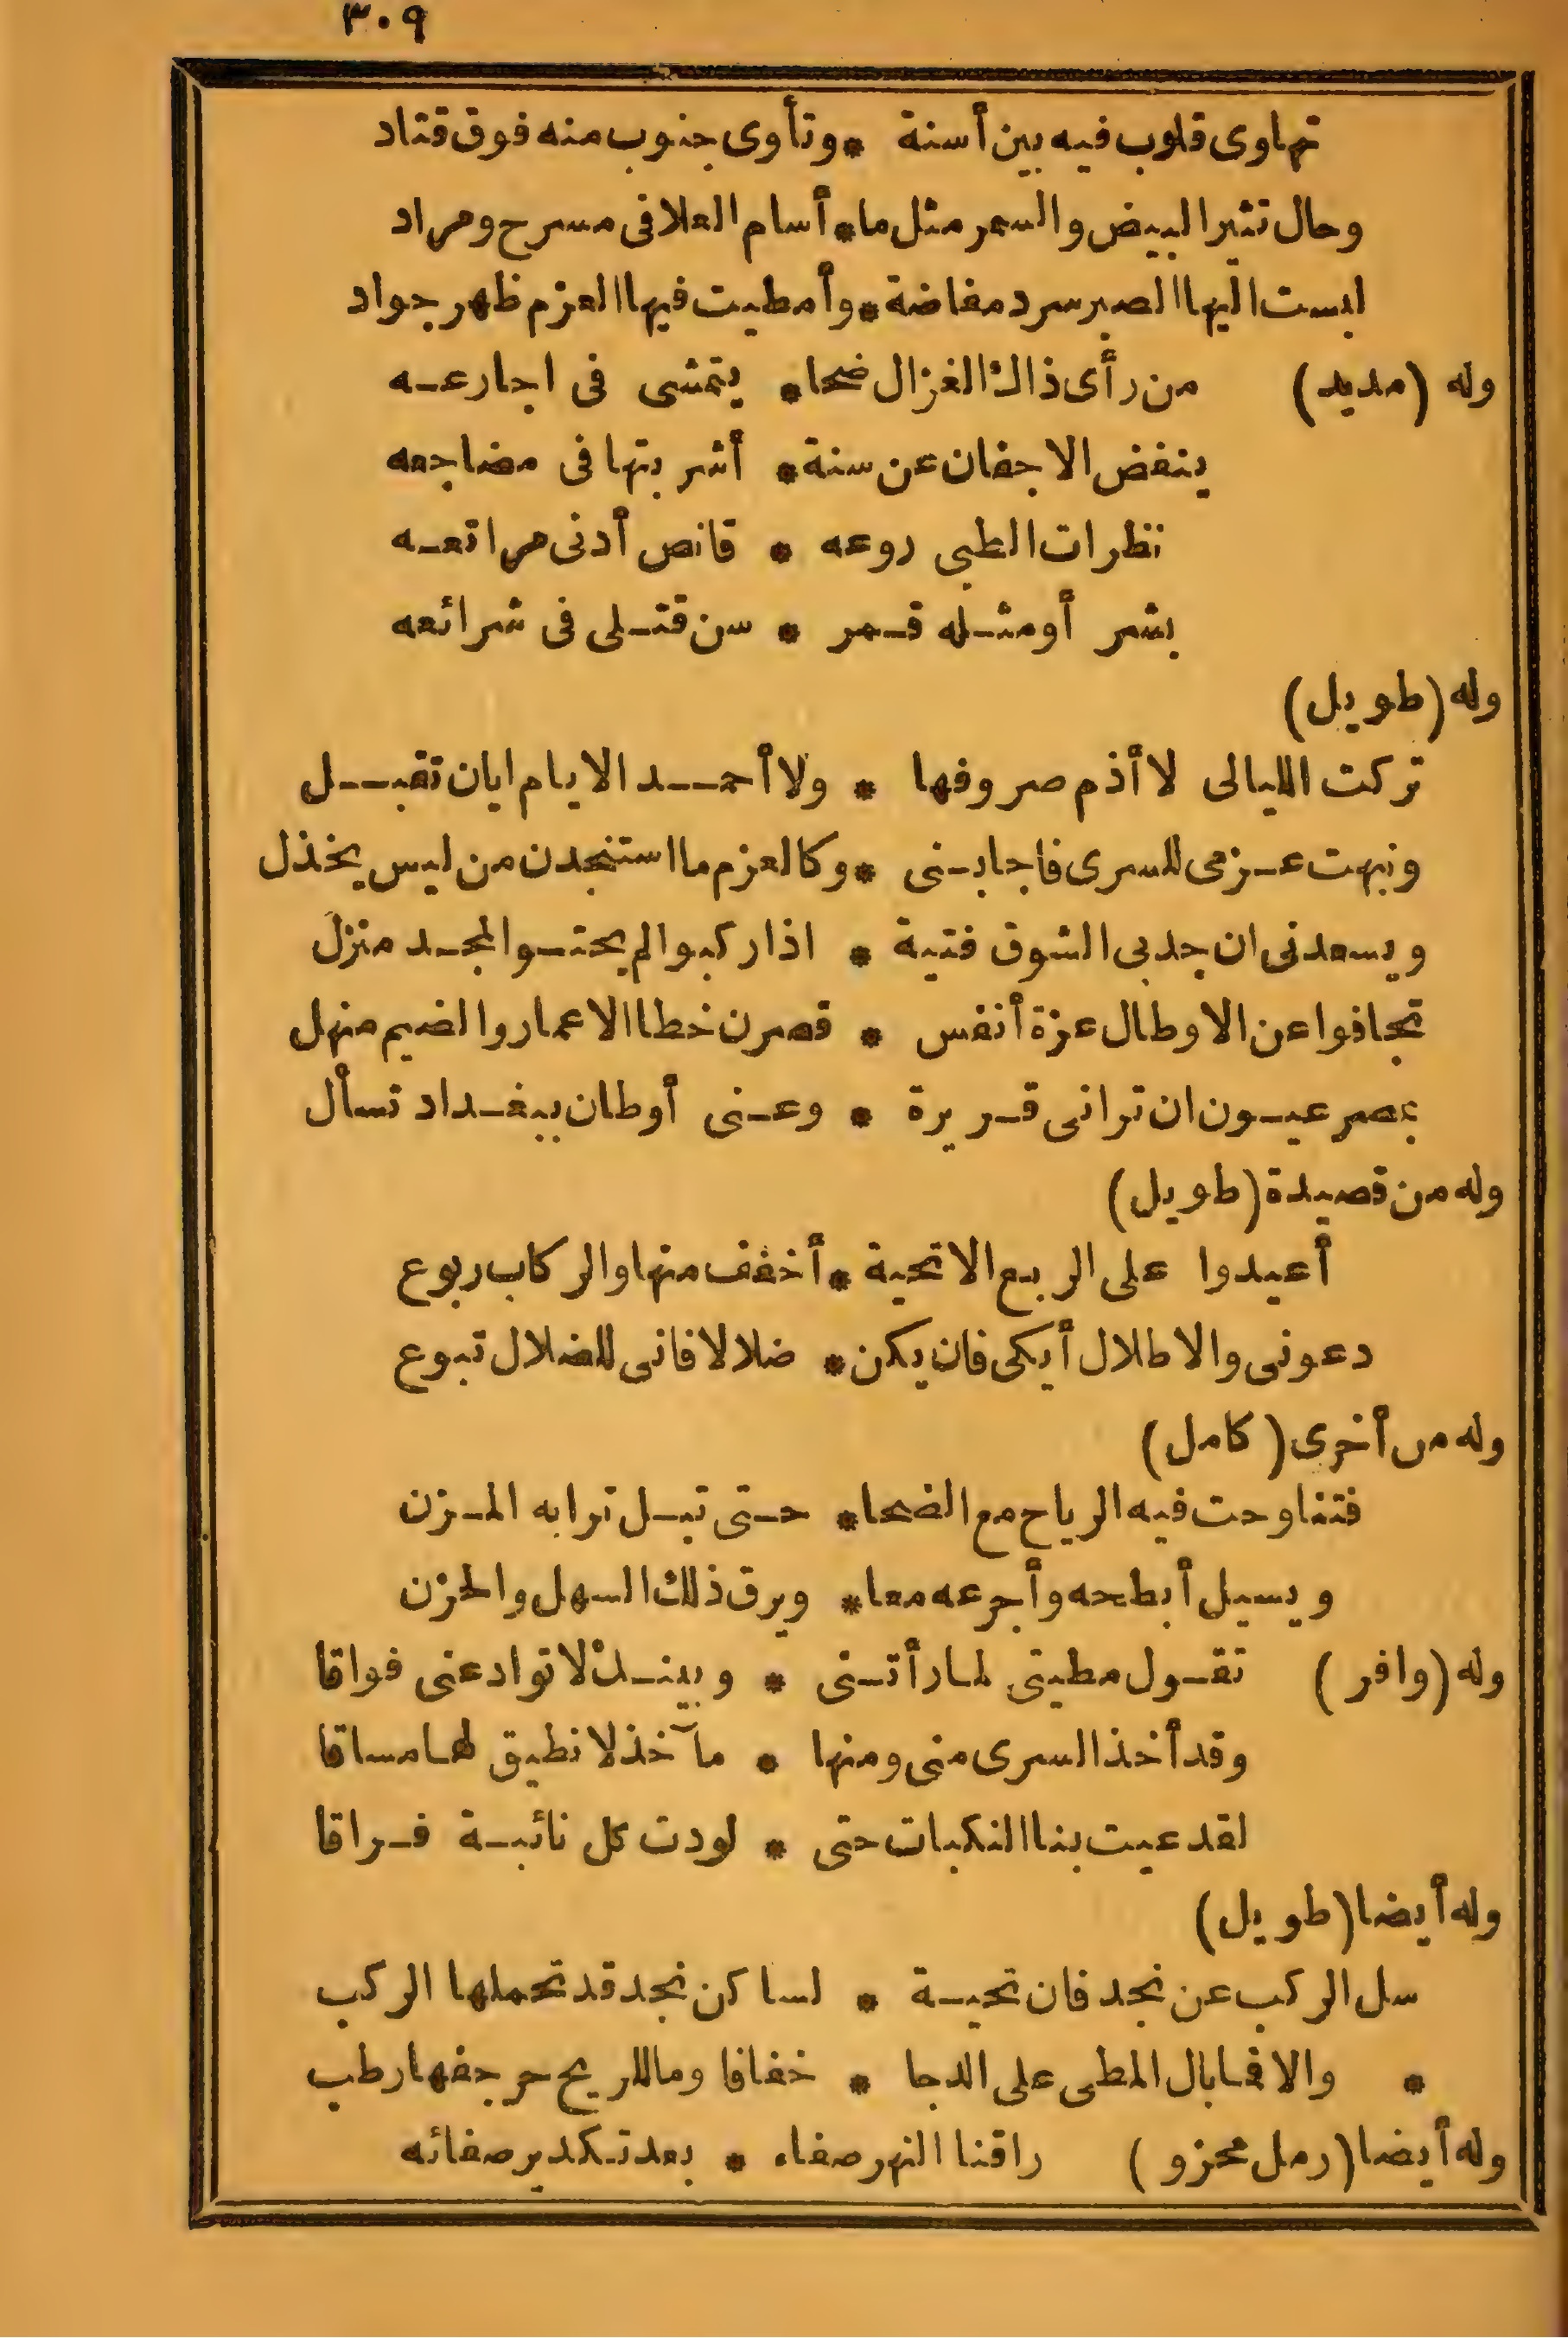 ٣٠٩
تهاوى قلوب فيه بين أسنة * وتأوى جنوب منه فوق قتاد
وحال تثير البيض والسمر مثل ما * أسام العلا فى مسرح ومراد
لبست اليها الصبر سرد مفاضة * وأمطيت فيها العزم ظهر جواد
وله (مديد) من رأى ذاك الغزال ضحا * يتمشى فى اجارعه
ينفض الاجفان عن سنة * أشربتها فى مضاجعه
نظرات الظبى روعه * قانص أدنى مراتعه
بشر أو مثله قمر * سن قتلى فى شرائعه
وله (طويل)
تركت الليالى لا أذم صروفها * ولا أحمد الايام ايان تقبل
ونبهت عزمى للسرى فاجابنى * وكالعزم ما استنجدن من ليس يخذل
ويسعدنى ان جدبى الشوق فتية * اذا ركبوا لم يحتو المجد منزل
تجافوا عن الاوطال عزة أنفس * قصرن خطا الاعمار والضيم منهل
بمصر عيون ان ترانى قريرة * وعنى أوطان ببغداد تسأل
وله من قصيدة (طويل)
أعيدوا على الربع الاتحية * أخفف منها والركاب ربوع
دعونى والاطلال أبكى فان يكن * ضلالا فانى للضلال تبوع
وله من أخرى (كامل)
فتناوحت فيه الرياح مع الضحا * حتى تبل ترابه المزن
ويسيل أبطحه وأجرعه معا * ويرق ذلك السهل والحزن
وله (وافر) تقول مطيتى لما رأتنى * وبينك لا توادعنى فواقا
وقد أخذ السرى منى ومنها * مآخذ لا نطيق لها مساقا
لقد عيت بنا النكبات حتى * لودت كل نائبة فراقا
وله أيضا (طويل)
سل الركب عن نجد فان تحية * لساكن نجد قد تحملها الركب
* والا فما بال المطى على الدجا * خفافا وما للريح حرجفها رطب
وله أيضا (رمل مجزو) راقنا النهر صفاء * بعد تكدير صفائه